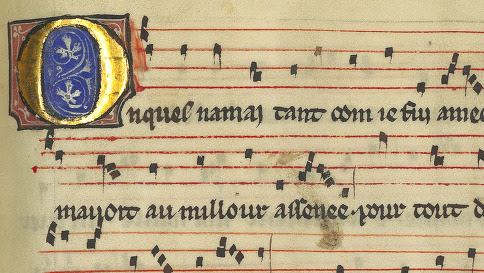 Onques namai tant com ie fui amee
mauort au millour assenee. pour tout d